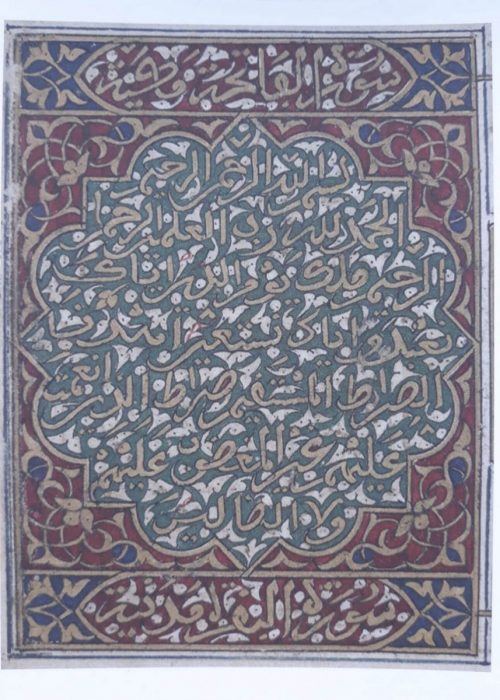 سورة الفاتحة
بسم الله الرحمن الرحيم
الحمد لله رب العلمين الرحمن
الرحيم ملك يوم الدين اياك
نعبد واياك نستعين اهدنا
الصراط المستقيم صراط الذين انعمت
عليهم غير المغضوب عليهم
ولا الضالين
سورة البقرة مدنية